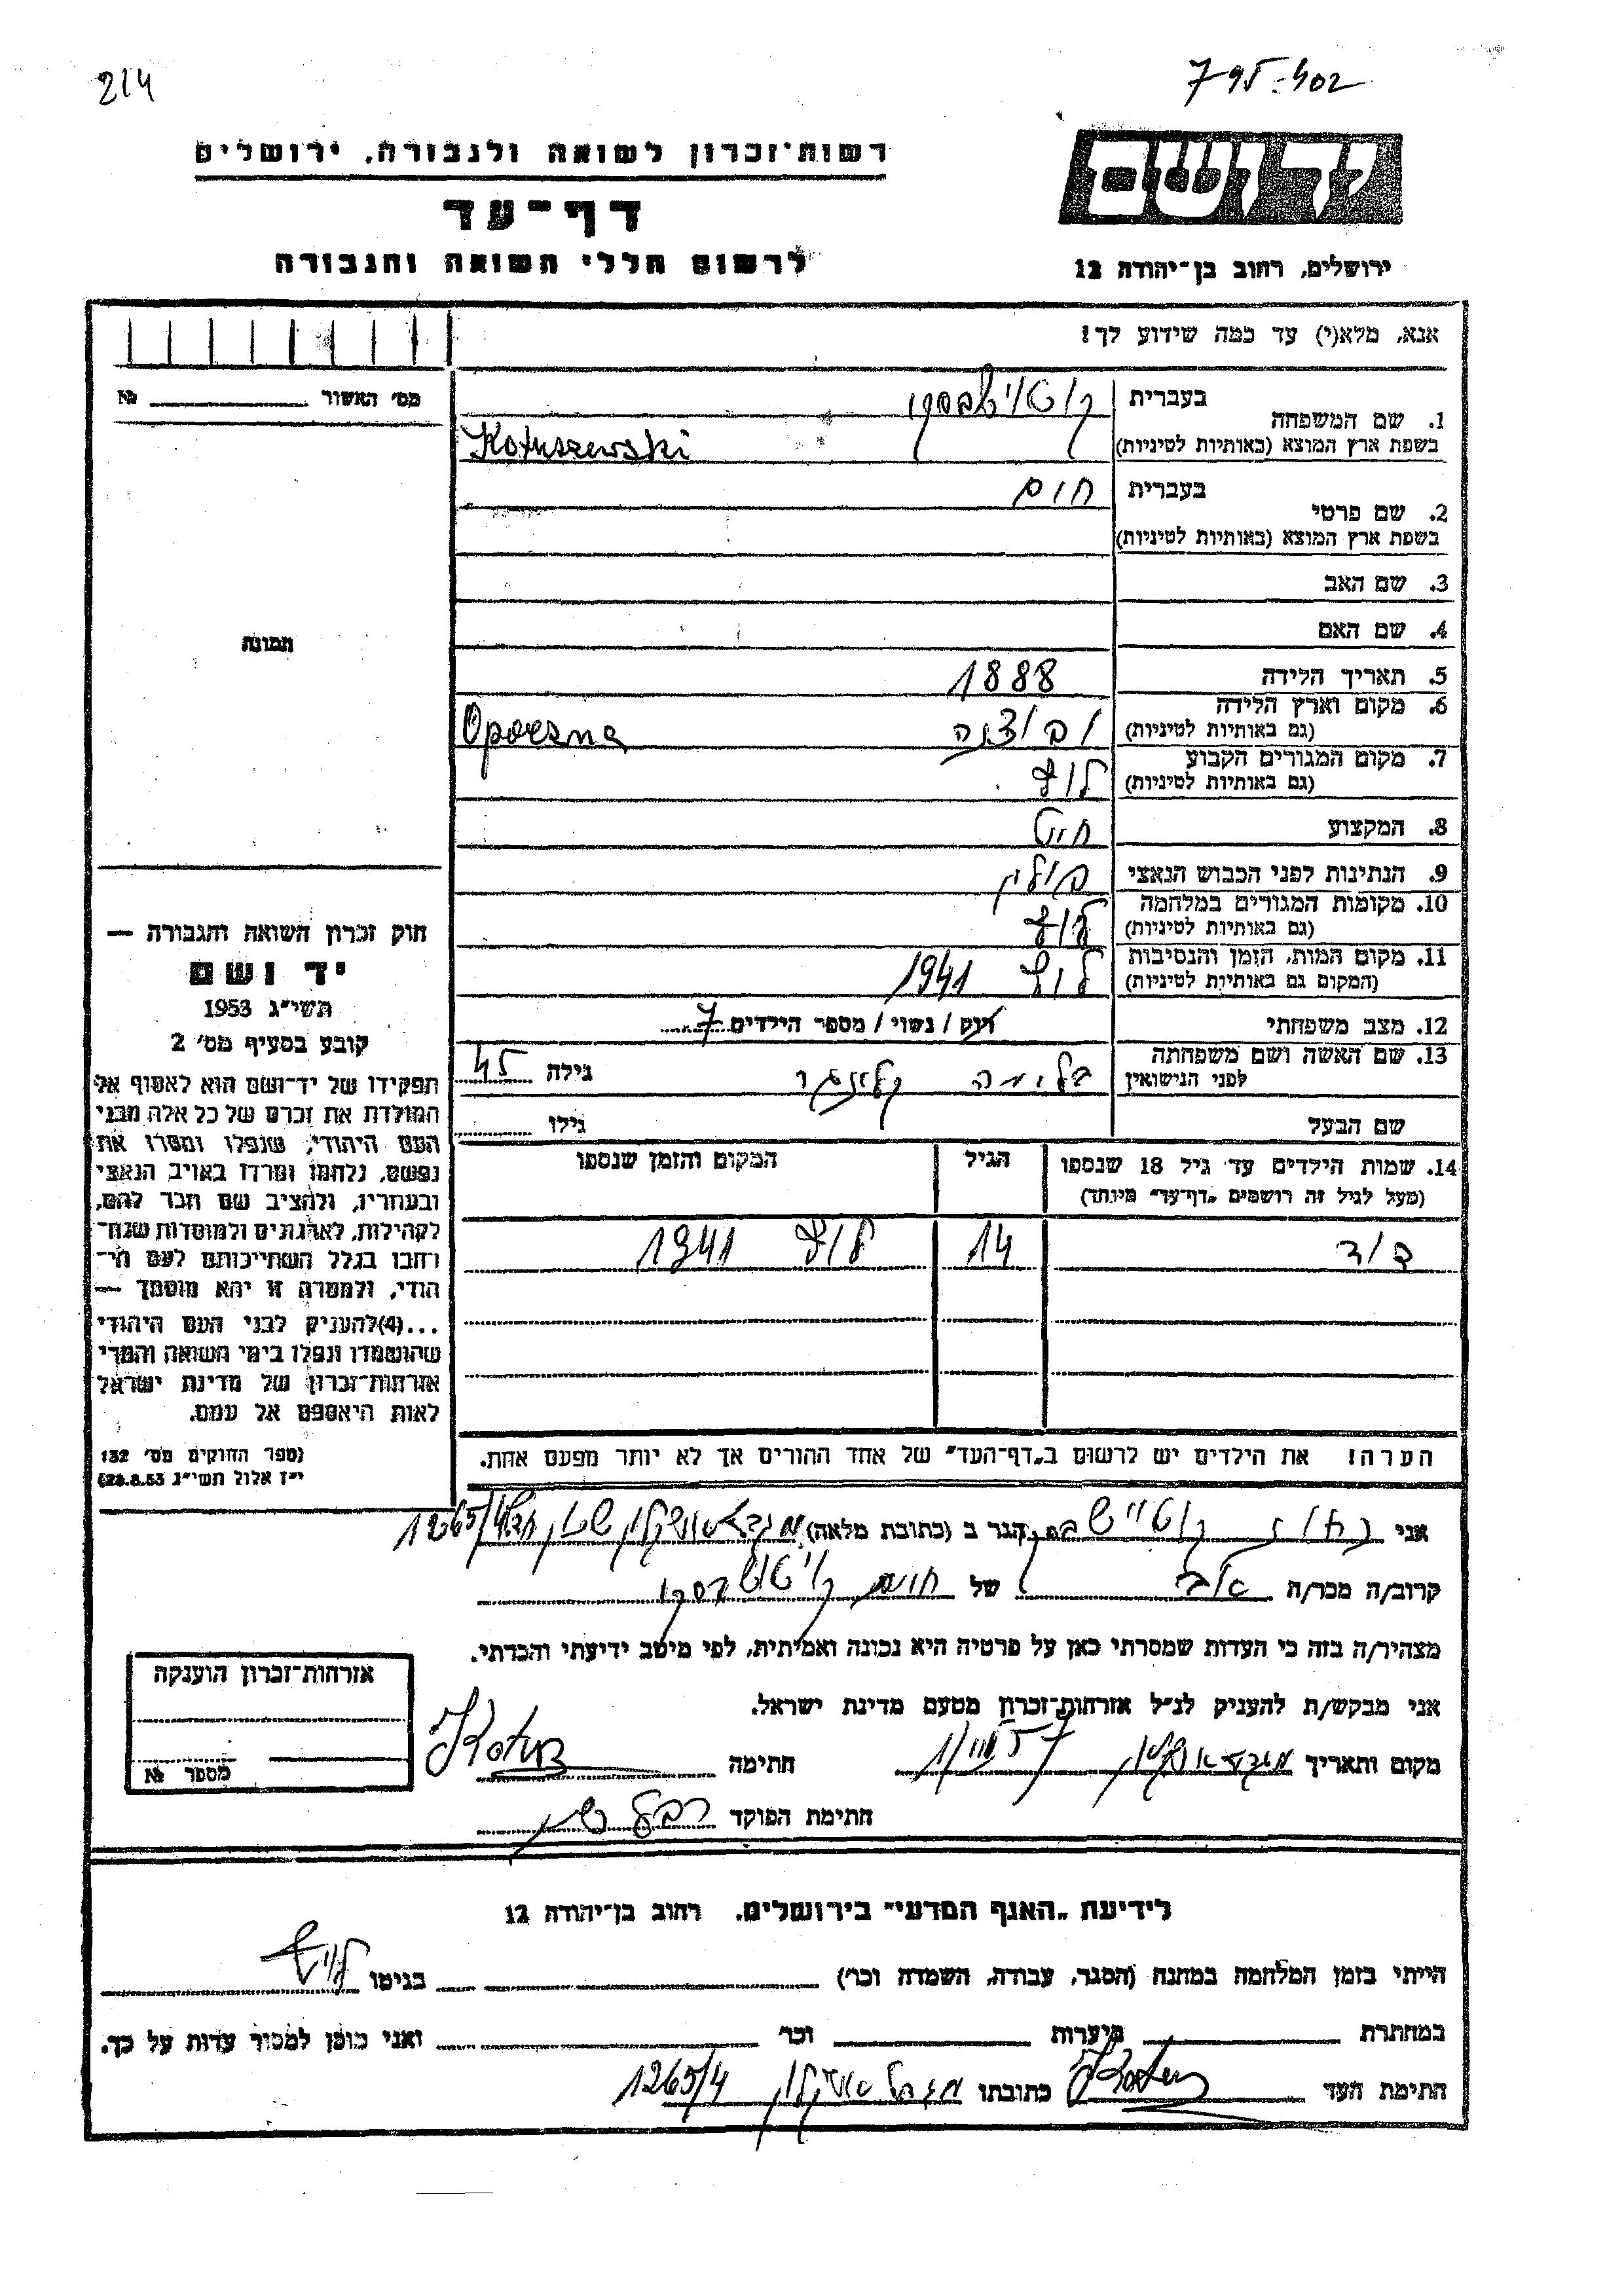 214
795-402
רשות־זכרון לשואה ולגבורה, ירושלים
יד ושם
דף־עד
לרשום חללי השואה והגבורה
ירושלים, רחוב בן־יהודה 12
אנא, מלא(י) עד כמה שידוע לך!
מס׳ האשור № 
1. שם המשפחה
בעברית
בשפת ארץ המוצא (באותיות לטיניות) Kotuszewski
2. שם פרטי
בעברית חיים
בשפת ארץ המוצא (באותיות לטיניות)
3. שם האב
4. שם האם
5. תאריך הלידה 1888
6. מקום וארץ הלידה
(גם באותיות לטיניות) Opoczna
7. מקום המגורים הקבוע לודז
(גם באותיות לטיניות)
8. המקצוע חייט
9. הנתינות לפני הכבוש הנאצי פולין
10. מקומות המגורים במלחמה לודז
(גם באותיות לטיניות)
11. מקום המות, הזמן והנסיבות לודז 1941
(המקום גם באותיות לטיניות)
12. מצב משפחתי רוק / נשוי / מספר הילדים 7
13. שם האשה ושם משפחתה
לפני הנישואין בלימה גילה 45
שם הבעל גילו
14. שמות הילדים עד גיל 18 שנספו הגיל המקום והזמן שנספו
(מעל לגיל זה רושמים „דף־עד״ מיוחד)
דוד 14 לודז 1941
הערה! את הילדים יש לרשום ב„דף־העד״ של אחד ההורים אך לא יותר מפעם אחת.
תמונה
חוק זכרון השואה והגבורה —
יד ושם
תשי״ג 1953
קובע בסעיף מס׳ 2
תפקידו של יד־ושם הוא לאסוף אל
המולדת את זכרם של כל אלה מבני
העם היהודי, שנפלו ומסרו את
נפשם, נלחמו ומרדו באויב הנאצי
ובעוזריו, ולהציב שם וזכר להם,
לקהילות, לארגונים ולמוסדות שנח־
רבו בגלל השתייכותם לעם הי־
הודי, ולמטרה זו יהא מוסמך —
...(4) להעניק לבני העם היהודי
שהושמדו ונפלו בימי השואה והמרי
אזרחות־זכרון של מדינת ישראל
לאות היאספם אל עמם.
(ספר החוקים מס׳ 132
י״ז אלול תשי״ג 28.8.53)
אני הגר ב (כתובת מלאה) מגדל אשקלון 1265/4
קרוב/ה מכר/ה של חיים
מצהיר/ה בזה כי העדות שמסרתי כאן על פרטיה היא נכונה ואמיתית, לפי מיטב ידיעתי והכרתי.
אני מבקש/ת להעניק לנ״ל אזרחות־זכרון מטעם מדינת ישראל.
מקום ותאריך מגדל אשקלון חתימה Kotus
חתימת הפוקד
אזרחות־זכרון הוענקה
מספר №
לידיעת „האגף המדעי״ בירושלים. רחוב בן־יהודה 12
הייתי בזמן המלחמה במחנה (הסגר, עבודה, השמדה וכר׳) בגיטו לודז
במחתרת ביערות וכר׳ ואני מוכן למסור עדות על כך.
חתימת העד Kotus כתובתו מגדל אשקלון 1265/4